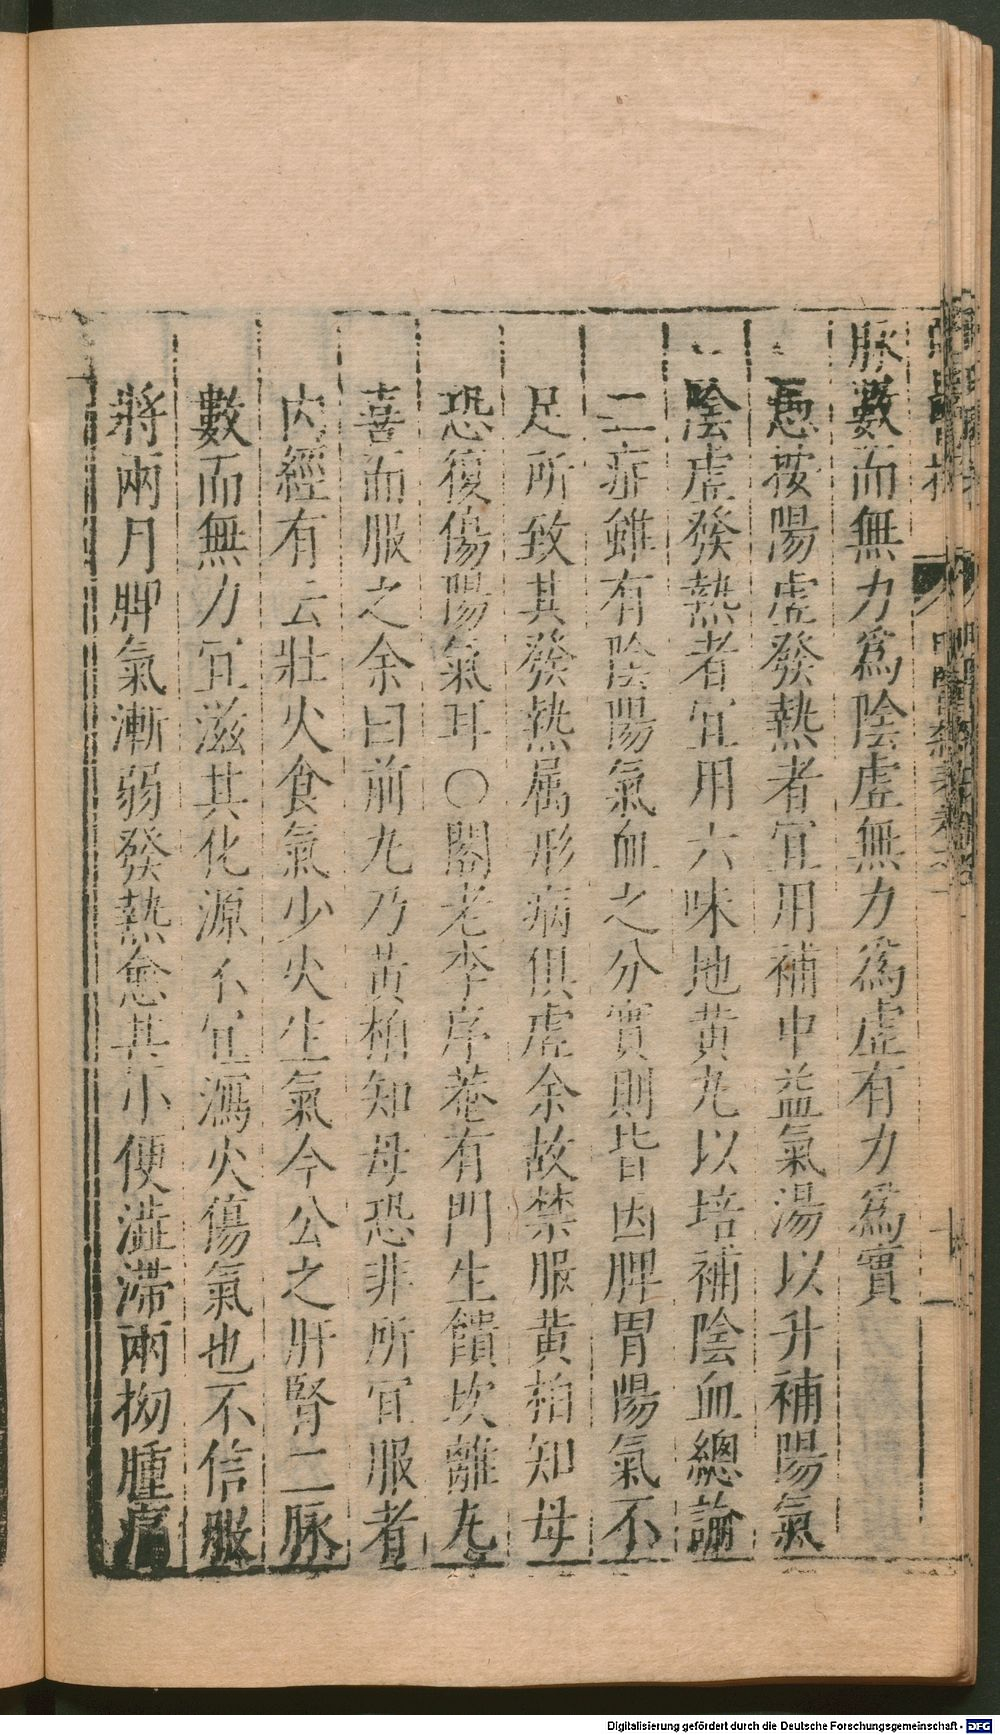 脉數而無力爲陰虛無力爲虛有力爲實
愚按陽虛發熱者宜用補中益氣湯以升補陽氣
陰虛發熱者宜用六味地黄丸以培補陰血總論
二症雖有陰陽氣血之分實則皆因脾胃陽氣不
足所致其發熱属形病俱虛余故禁服黄柏知母
恐復傷陽氣耳○閣老李序菴有門生饋坎離丸
喜而服之余曰前丸乃黄柏知母恐非所宜服者
内經有云壯火食氣少火生氣今公之肝腎二脉
數而無力宜滋其化源不宜瀉火傷氣也不信服
將兩月脾氣漸弱發熱愈甚小便澁滯兩拗腫痛
Digitalisierung gefördert durch die Deutsche Forschungsgemeinschaft - DFG